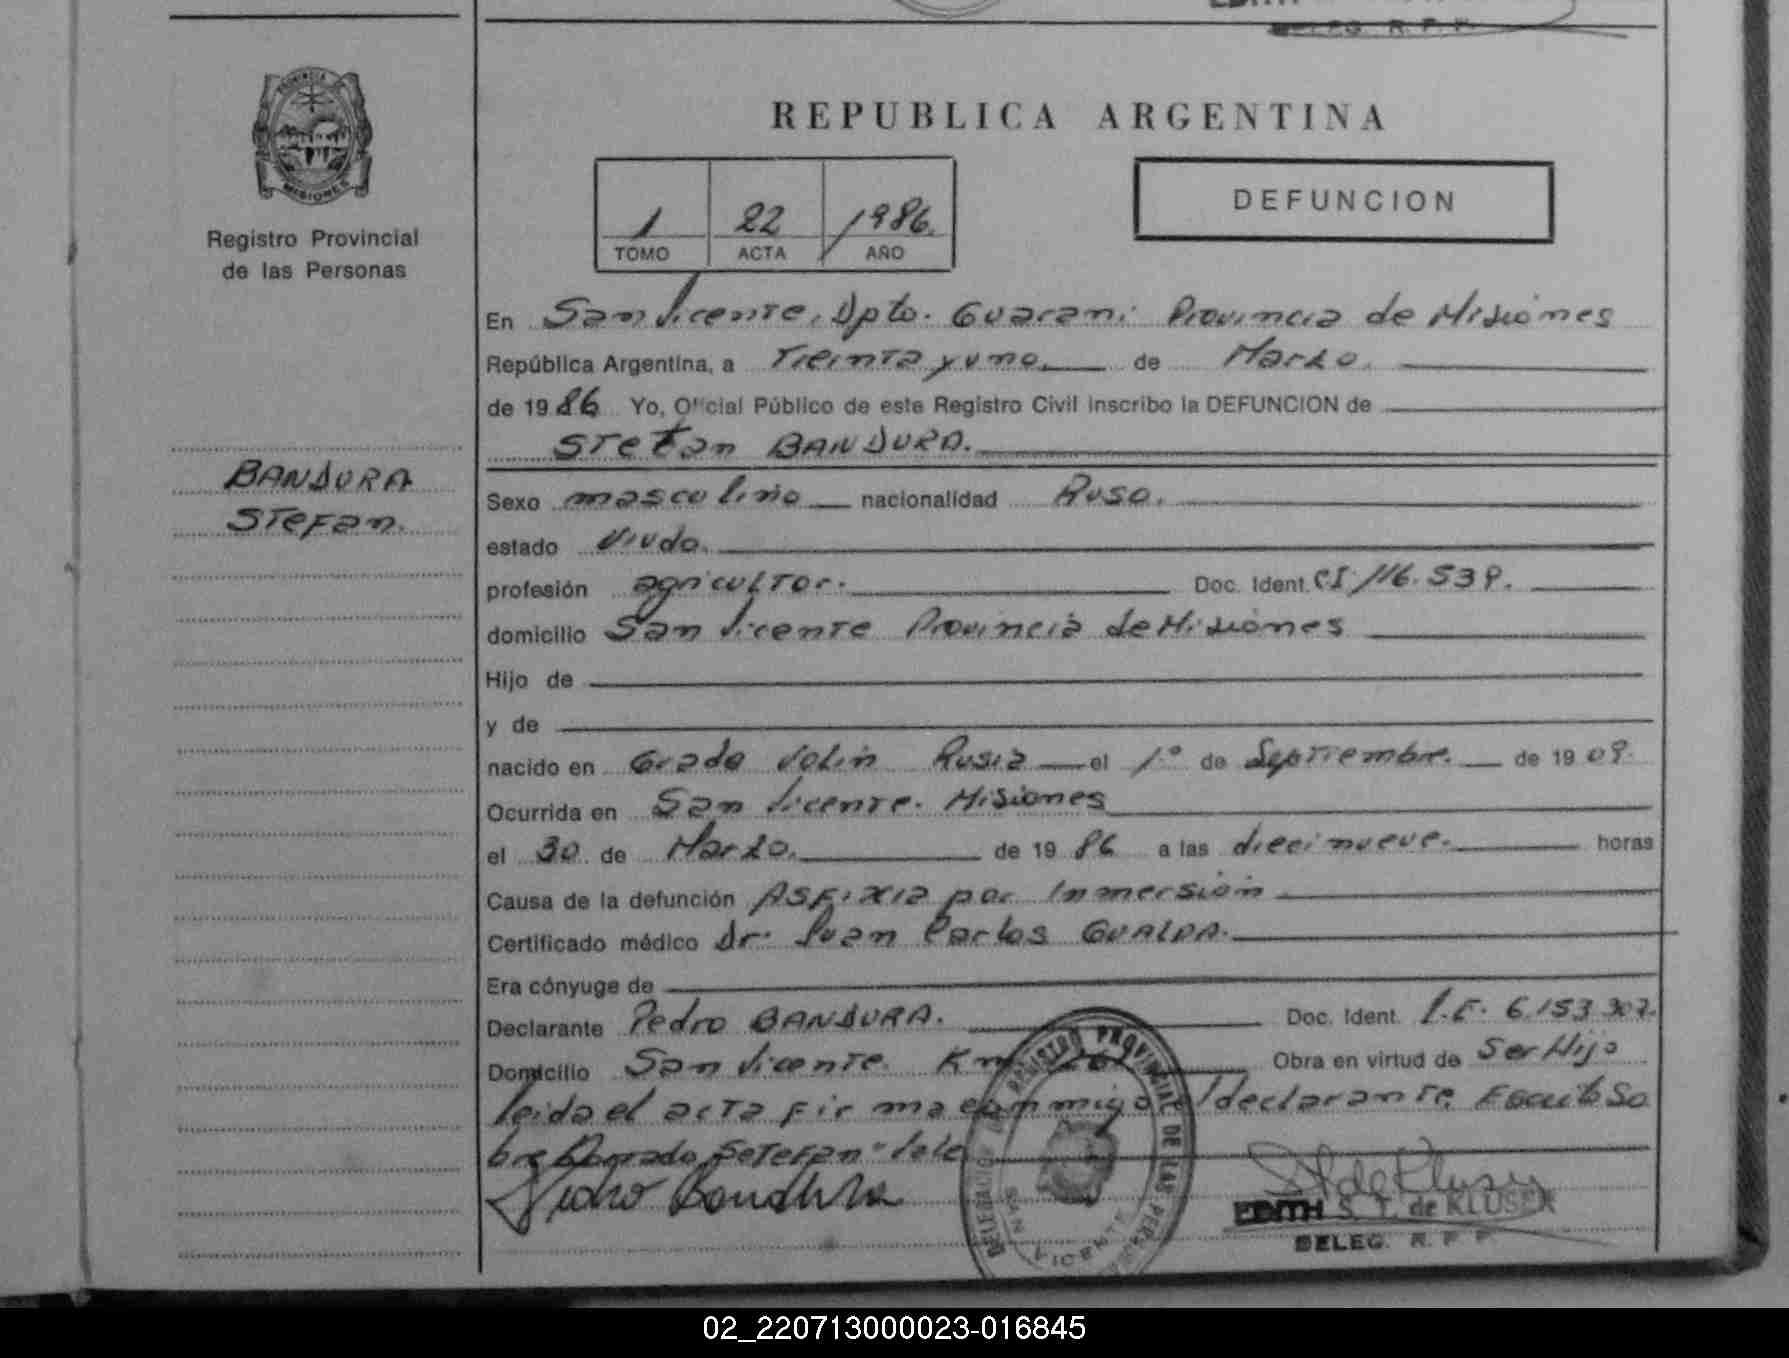 DELEG. R. P. P.
PROVINCIA DE
MISIONES
Registro Provincial
de las Personas
REPUBLICA ARGENTINA
1 22 1986.
TOMO ACTA AÑO
DEFUNCION
En San Vicente, Dpto. Guarani Provincia de Misiones
República Argentina, a Treinta y uno. de Marzo.
de 1986 Yo, Oficial Público de este Registro Civil inscribo la DEFUNCION de
Stefan BANDURA.
BANDURA
Stefan.
Sexo masculino nacionalidad Ruso.
estado Viudo.
profesión agricultor. Doc. Ident. CI. 116.539.
domicilio San Vicente Provincia de Misiones
Hijo de
y de
nacido en Grado Volin Rusia el 1° de Septiembre. de 1909.
Ocurrida en San Vicente. Misiones
el 30 de Marzo. de 1986 a las diecinueve. horas
Causa de la defunción Asfixia por Inmersión
Certificado médico Dr. Juan Carlos GUALDA.
Era cónyuge de
Declarante Pedro BANDURA. Doc. Ident. L.E. 6.153.307.
Domicilio San Vicente. Km Obra en virtud de Ser Hijo
leida el acta firma conmigo el declarante. Escrito So
bre Borrado "Setefan" Vale
Pedro Bandura
REGISTRO PROVINCIAL DE LAS PERSONAS
DELEGACION
SAN VICENTE
EDITH S. T. de KLUSER
DELEG. R. P. P.
02_220713000023-016845